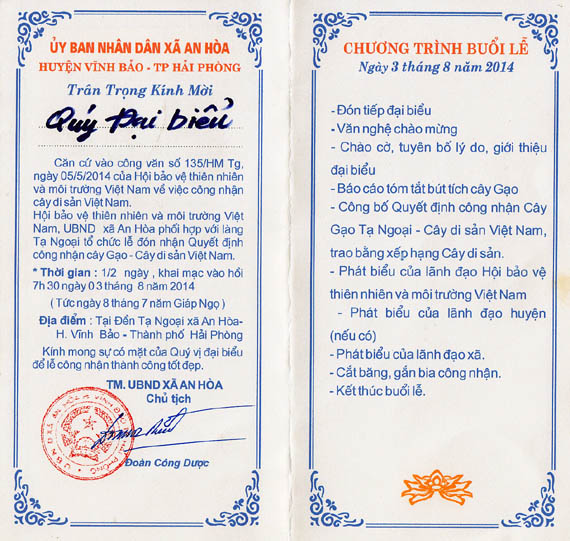 ỦY BAN NHÂN DÂN XÃ AN HÒA
HUYỆN VĨNH BẢO - TP HẢI PHÒNG
Trân Trọng Kính Mời
Quý Đại biểu
Căn cứ vào công văn số 135/HM Tg,
ngày 05/5/2014 của Hội bảo vệ thiên nhiên
và môi trường Việt Nam về việc công nhận
cây di sản Việt Nam.
Hội bảo vệ thiên nhiên và môi trường Việt
Nam, UBND xã An Hòa phối hợp với làng
Tạ Ngoại tổ chức lễ đón nhận Quyết định
công nhận cây Gạo - Cây di sản Việt Nam.
* Thời gian : 1/2 ngày , khai mạc vào hồi
7h 30 ngày 03 tháng 8 năm 2014
( Tức ngày 8 tháng 7 năm Giáp Ngọ )
Địa điểm : Tại Đền Tạ Ngoại xã An Hòa-
H. Vĩnh Bảo - Thành phố Hải Phòng
Kính mong sự có mặt của Quý vị đại biểu
để lễ công nhận thành công tốt đẹp.
TM. UBND XÃ AN HÒA
Chủ tịch
Đoàn Công Dược
CHƯƠNG TRÌNH BUỔI LỄ
Ngày 3 tháng 8 năm 2014
- Đón tiếp đại biểu
- Văn nghệ chào mừng
- Chào cờ, tuyên bố lý do, giới thiệu
đại biểu
- Báo cáo tóm tắt bút tích cây Gạo
- Công bố Quyết định công nhận Cây
Gạo Tạ Ngoại - Cây di sản Việt Nam,
trao bằng xếp hạng Cây di sản.
- Phát biểu của lãnh đạo Hội bảo vệ
thiên nhiên và môi trường Việt Nam
- Phát biểu của lãnh đạo huyện
(nếu có)
- Phát biểu của lãnh đạo xã.
- Cắt băng, gắn bia công nhận.
- Kết thúc buổi lễ.